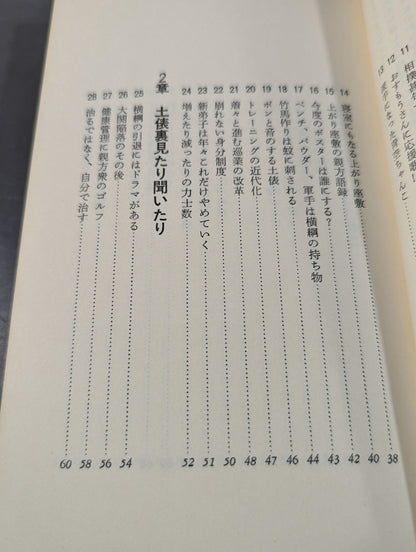 11 相撲甚句
12 おすもうさんに応援歌！
13 青空ちゃんこ
14 寝室にもなる上がり座敷 38
15 上がり座敷の親方語録 40
16 今度のポスターは誰にする？ 42
17 ベンチ、パウダー、軍手は横綱の持ち物 43
18 竹馬作りは蚊に刺される 44
19 ポンと音のする土俵 46
20 トレーニングの近代化 47
21 着々と進む巡業の改革 48
22 崩れない身分制度 50
23 新弟子は年々これだけやめていく 51
24 増えたり減ったりの力士数 52
2章 土俵裏見たり聞いたり
25 横綱の引退にはドラマがある 54
26 大関陥落のその後 56
27 健康管理に親方衆のゴルフ 58
28 治るではなく、自分で治す 60